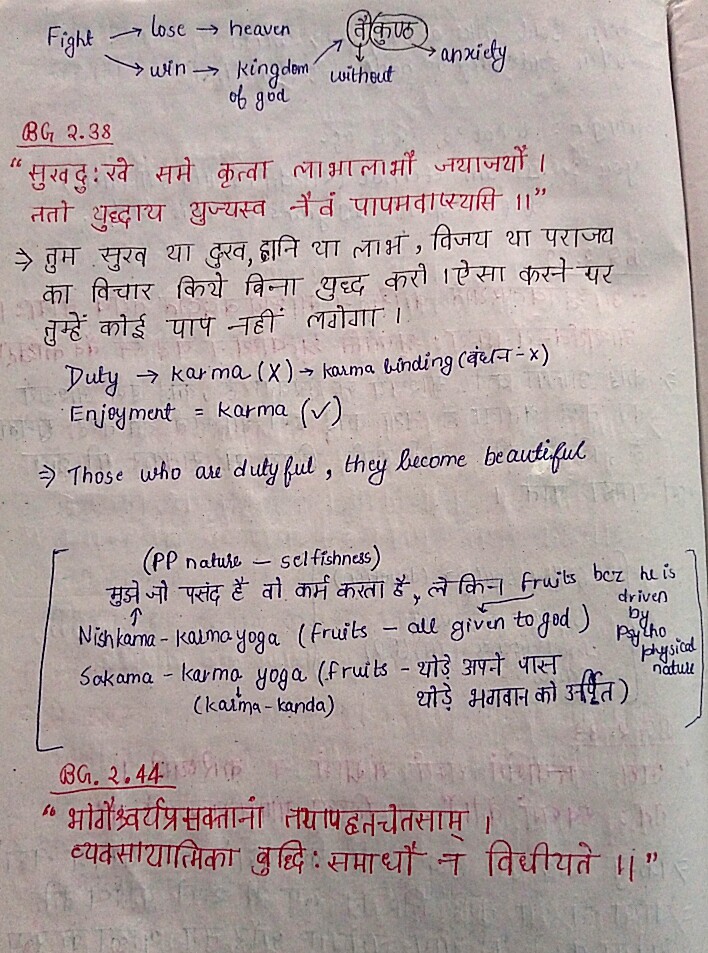 Fight → lose → heaven
→ win → kingdom of god → वैकुण्ठ
without → anxiety
BG 2.38
"सुखदु:खे समे कृत्वा लाभालाभौ जयाजयौ ।
ततो युद्धाय युज्यस्व नैवं पापमवाप्स्यसि ॥"
⇒ तुम सुख या दुख, हानि या लाभ, विजय या पराजय
का विचार किये बिना युद्ध करो । ऐसा करने पर
तुम्हें कोई पाप नहीं लगेगा ।
Duty → karma (X) → karma binding (बंधन - x)
Enjoyment = karma (✓)
⇒ Those who are dutyful, they become beautiful
(PP nature – selfishness)
मुझे जो पसंद है वो कर्म करता है, लेकिन fruits bcz he is
driven
by
psycho
physical
nature
Nishkama - karma yoga (fruits – all given to god)
Sakama - karma yoga (fruits - थोड़े अपने पास
(karma-kanda) थोड़े भगवान को अर्पित)
BG. 2.44
"भोगैश्वर्यप्रसक्तानां तयापहृतचेतसाम् ।
व्यवसायात्मिका बुद्धि: समाधौ न विधीयते ॥"